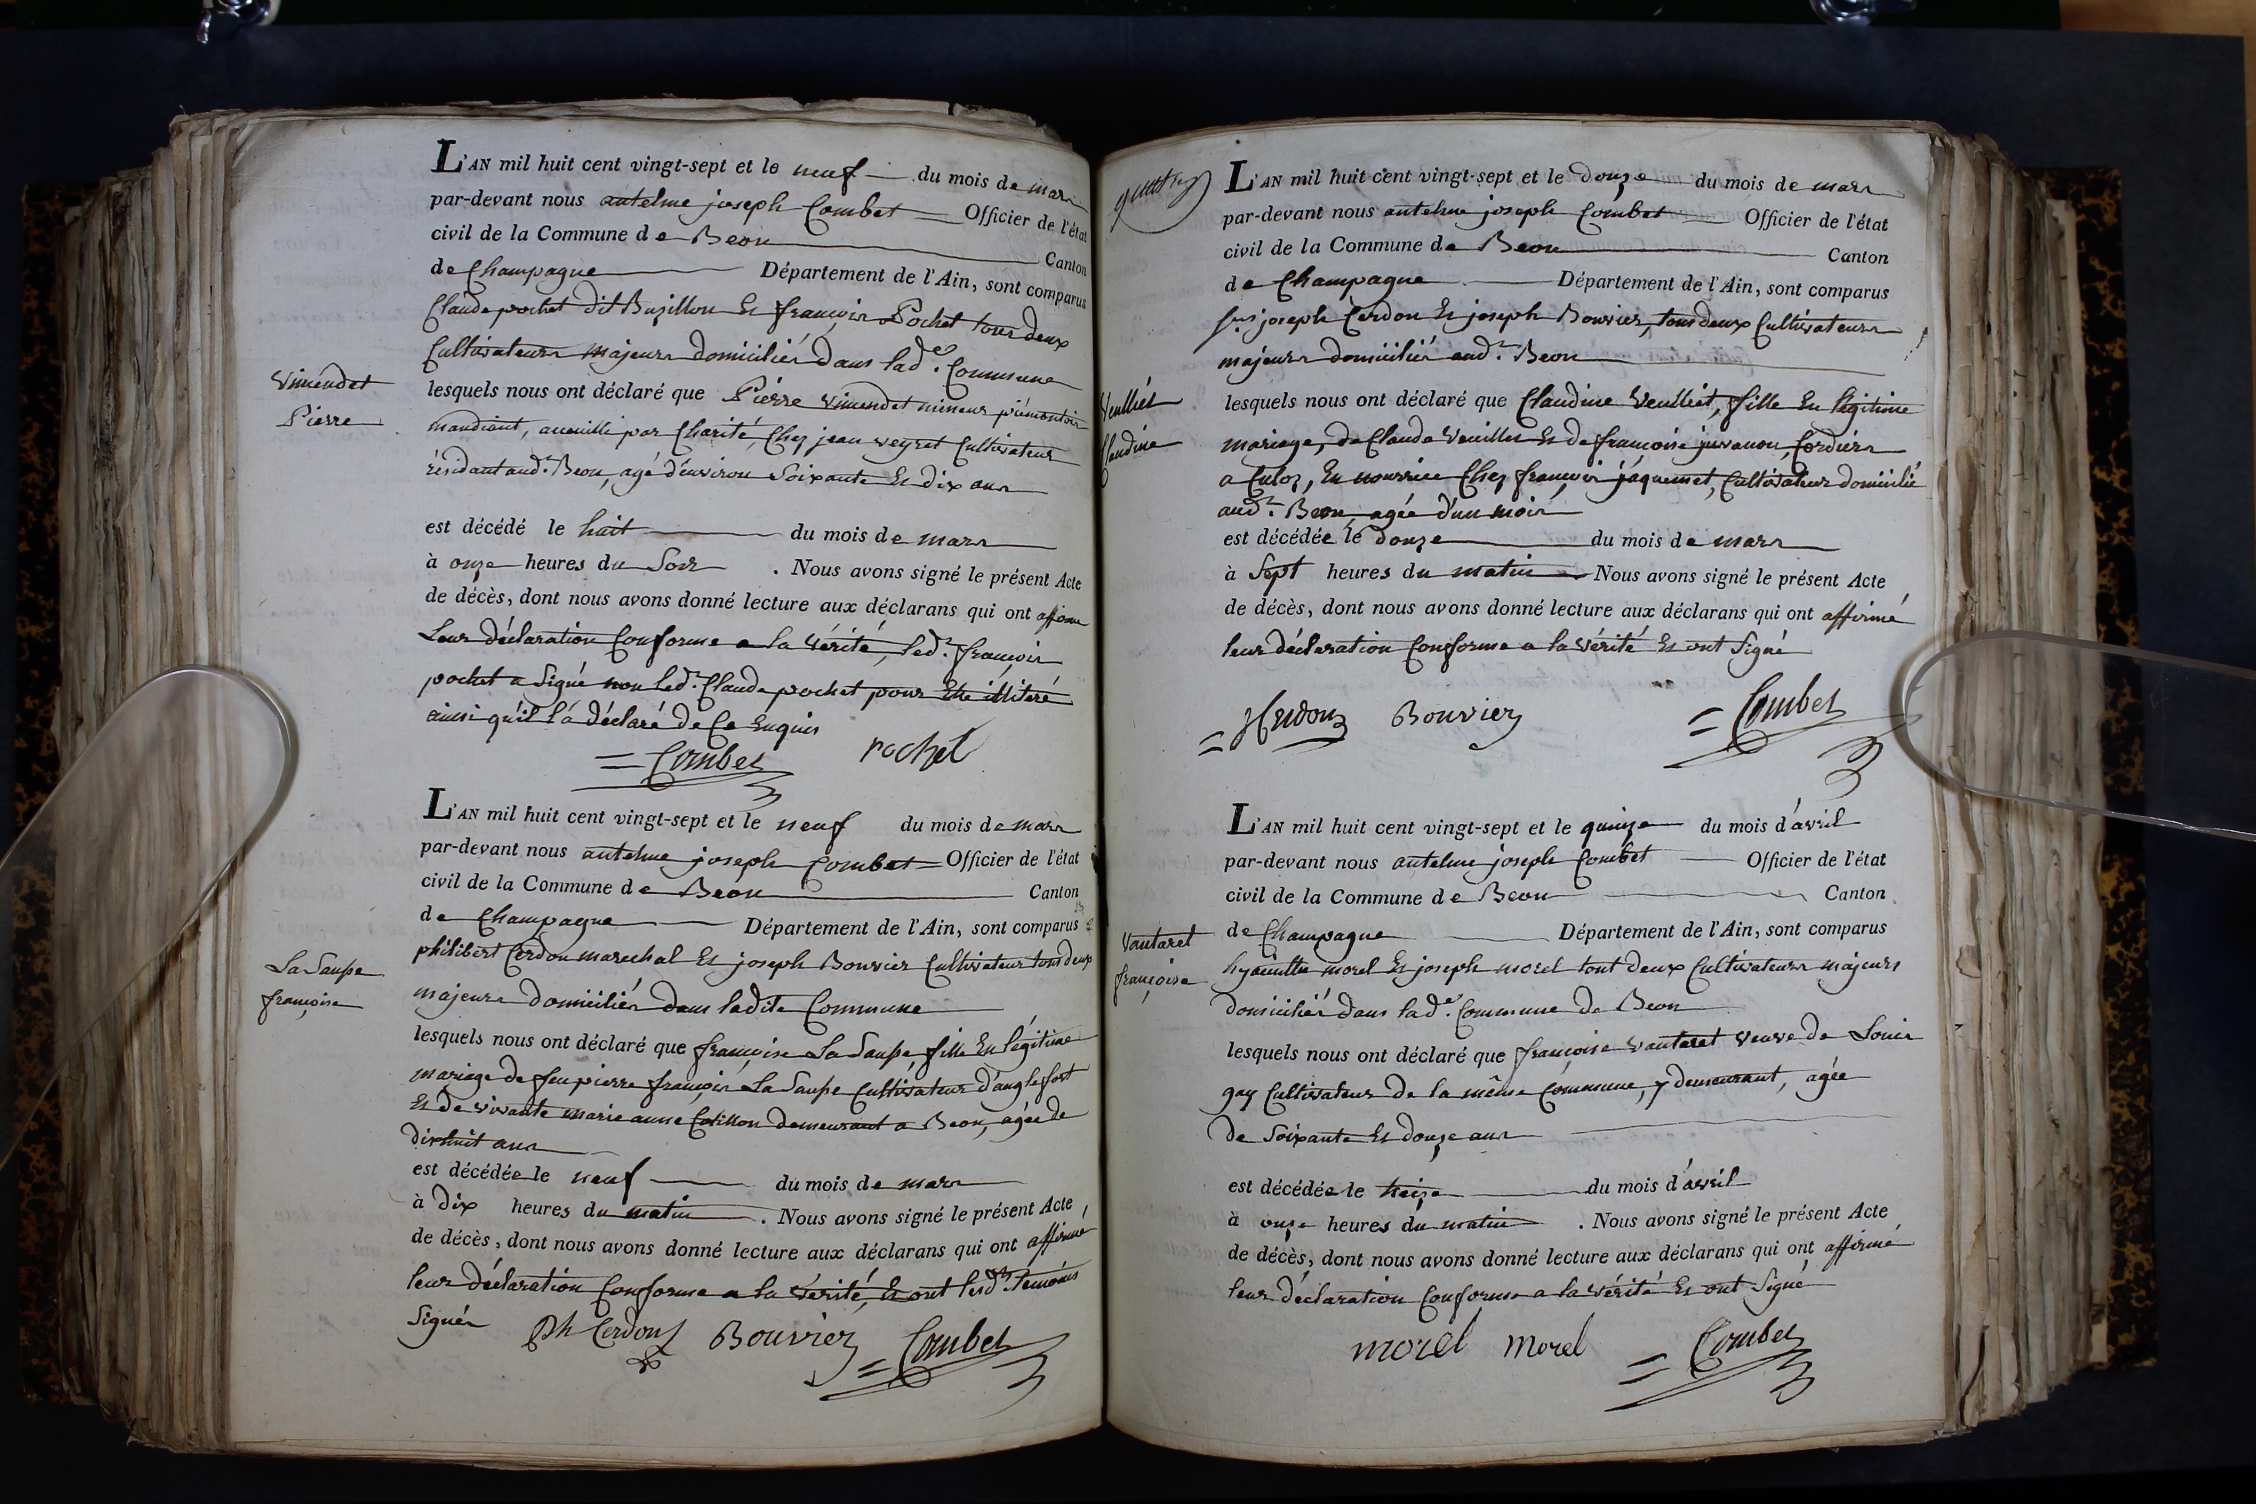 L'AN mil huit cent vingt-sept et le neuf du mois de mars
par-devant nous antelme joseph Combet Officier de l'état
civil de la Commune de Beon Canton
de Champagne Département de l'Ain, sont comparus
Claude pochet dit Buzillon Et françois Pochet tous deux
Cultivateurs majeurs domiciliés dans lad.e Commune
Vimendet
Pierre
lesquels nous ont déclaré que Pierre Vimendet mineur piémontois
mandiant, accueilli par Charité, Chez jean veyret Cultivateur
résidant aud.t Beon, agé d'environ Soixante Et dix ans
est décédé le huit du mois de mars
à onze heures du Soir . Nous avons signé le présent Acte
de décès, dont nous avons donné lecture aux déclarans qui ont affirmé
Leur déclaration Conforme a la vérité, led.t françois
pochet a Signé non led.t Claude pochet pour Etre illiteré
ainsi qu'il l'a déclaré de Ce Enquis
Combet pochet
L'AN mil huit cent vingt-sept et le neuf du mois de mars
par-devant nous antelme joseph Combet Officier de l'état
civil de la Commune de Beon Canton
de Champagne Département de l'Ain, sont comparus
philibert Cerdon marechal Et joseph Bouvier Cultivateur tous deux
majeurs domiciliés dans ladite Commune
La Saupe
françoise
lesquels nous ont déclaré que françoise La Saupe fille En légitime
mariage de feu pierre françois La Saupe Cultivateur d'anglefort
Et de vivante marie anne Cotillon demeurant a Beon, agée de
dixhuit ans
est décédée le neuf du mois de mars
à dix heures du matin . Nous avons signé le présent Acte
de décès, dont nous avons donné lecture aux déclarans qui ont affirmé
leur déclaration Conforme a la vérité, Et ont lesd.ts témoins
Signés
Ph Cerdon Bouvier Combet
L'AN mil huit cent vingt-sept et le douze du mois de mars
par-devant nous antelme joseph Combet Officier de l'état
civil de la Commune de Beon Canton
de Champagne Département de l'Ain, sont comparus
joseph Cerdon Et joseph Bouvier, tous deux Cultivateurs
majeurs domiciliés aud.t Beon
Veulliet
Claudine
lesquels nous ont déclaré que Claudine Veulliet, fille En légitime
mariage, de Claude Veuillet Et de françoise juvanon, Cordiers
a Culoz, En nourrice Chez françois jaquemet, Cultivateur domicilié
aud.t Beon, agée d'un mois
est décédée le douze du mois de mars
à Sept heures du matin . Nous avons signé le présent Acte
de décès, dont nous avons donné lecture aux déclarans qui ont affirmé
leur déclaration Conforme a la vérité Et ont Signé
Cerdon Bouvier Combet
L'AN mil huit cent vingt-sept et le quinze du mois d'avril
par-devant nous antelme joseph Combet Officier de l'état
civil de la Commune de Beon Canton
de Champagne Département de l'Ain, sont comparus
hyacinthe morel Et joseph morel tout deux Cultivateurs majeurs
domiciliés dans lad.e Commune de Beon
Vautaret
françoise
lesquels nous ont déclaré que françoise Vautaret veuve de Louis
gay Cultivateur de la même Commune, y demeurant, agée
de Soixante Et douze ans
est décédée le treize du mois d'avril
à onze heures du matin . Nous avons signé le présent Acte
de décès, dont nous avons donné lecture aux déclarans qui ont affirmé
leur déclaration Conforme a la vérité Et ont Signé
morel Morel Combet